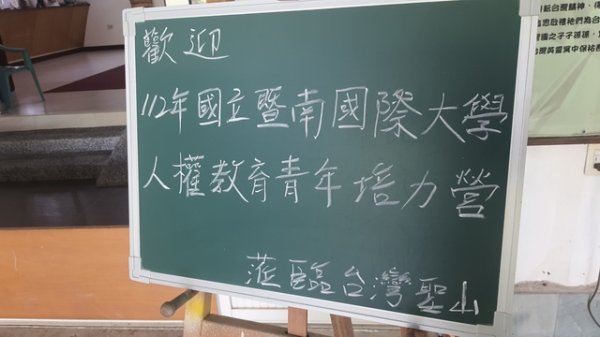 歡迎
112年國立暨南國際大學
人權教育青年培力營
蒞臨台灣聖山